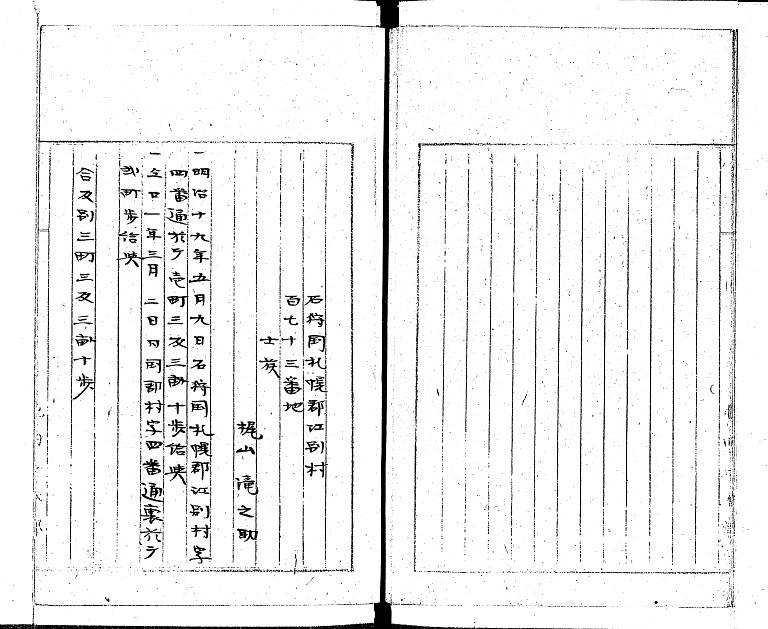 石狩国札幌郡江別村
百七十三番地
士族
梶山滝之助
一明治十九年五月九日石狩国札幌郡江別村字
四番通於テ壱町三反三畝十歩給与
一仝廿一年三月二日同国郡村字四番通裏於テ
弐町歩給与
合反別三町三反三畝十歩